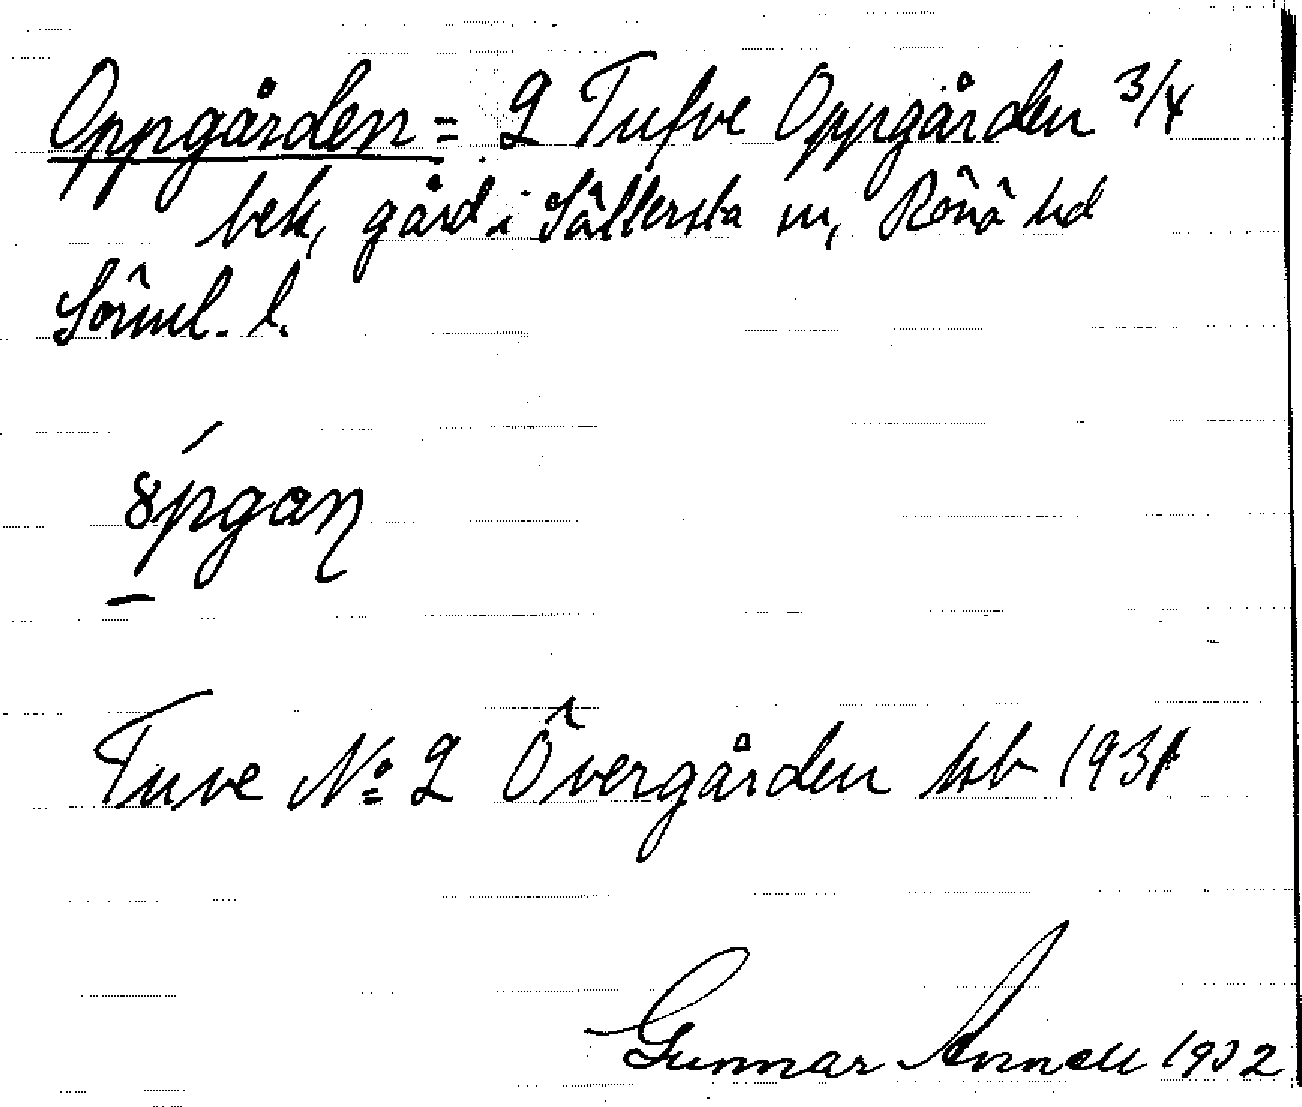 Oppgården = 2 Tufve Oppgården 3/4
bek, gård i Sättersta sn, Rönö hd
Sörml. l.
Tuve No 2 Övergården kb 1931
Gunnar Annell 1932